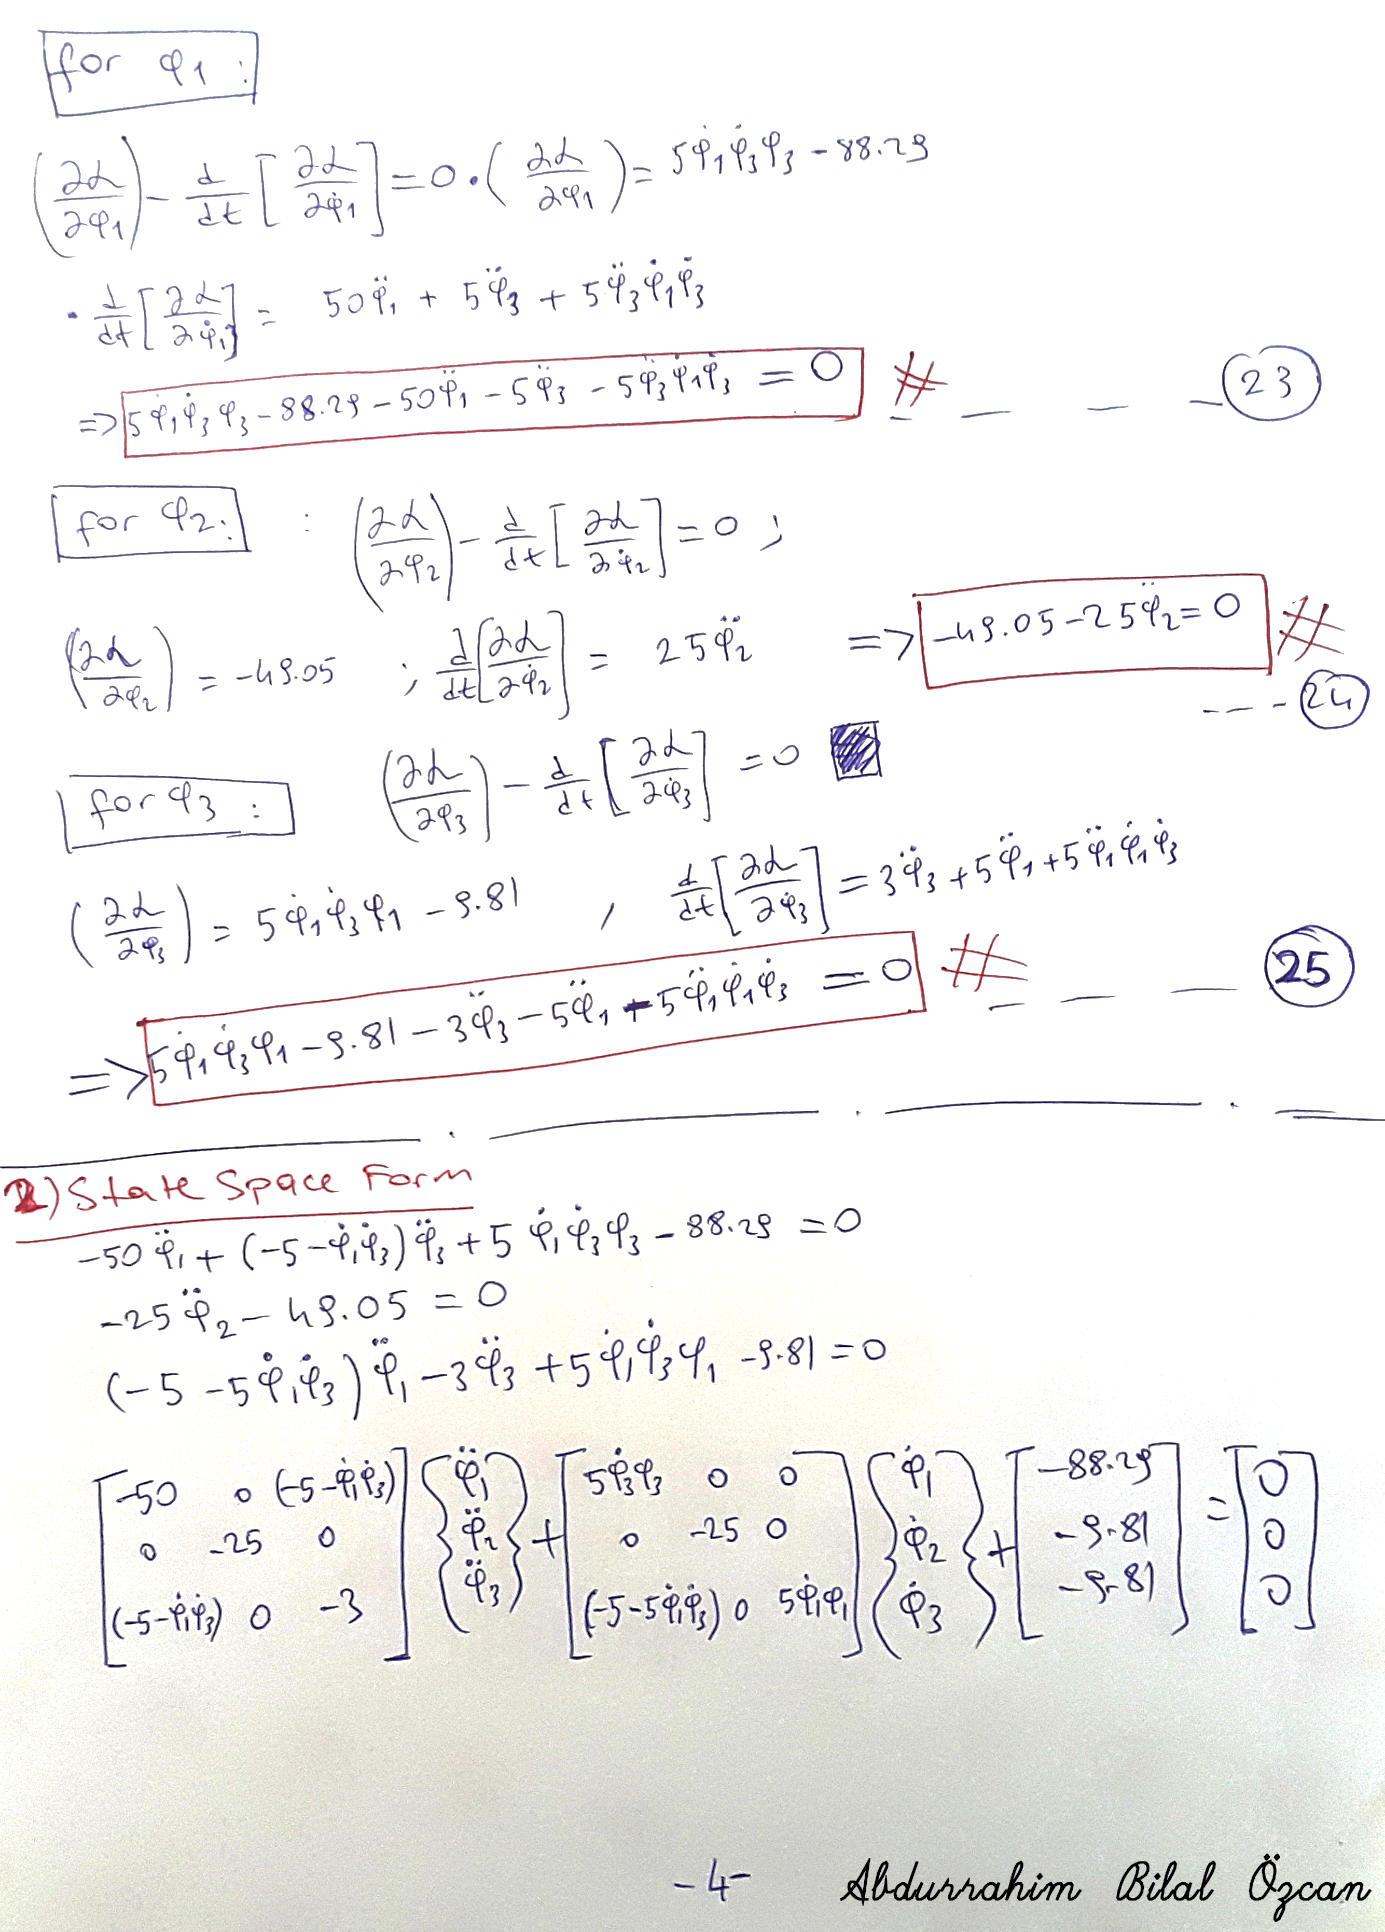 for φ1 :
(∂L/∂φ1) - d/dt [∂L/∂φ̇1] = 0 . (∂L/∂φ1) = 5φ̇1φ̇3φ3 - 88.29
· d/dt [∂L/∂φ̇1] = 50φ̈1 + 5φ̈3 + 5φ̈3φ̇1φ̇3
=> 5φ̇1φ̇3φ3 - 88.29 - 50φ̈1 - 5φ̈3 - 5φ̈3φ̇1φ̇3 = 0 # _ _ _ _ (23)
for φ2: : (∂L/∂φ2) - d/dt [∂L/∂φ̇2] = 0 ;
(∂L/∂φ2) = -49.05 ; d/dt [∂L/∂φ̇2] = 25φ̈2 => -49.05 - 25φ̈2 = 0 #
--- (24)
for φ3 : (∂L/∂φ3) - d/dt [∂L/∂φ̇3] = 0
(∂L/∂φ3) = 5φ̇1φ̇3φ1 - 9.81 , d/dt [∂L/∂φ̇3] = 3φ̈3 + 5φ̈1 + 5φ̈1φ̇1φ̇3
=> 5φ̇1φ̇3φ1 - 9.81 - 3φ̈3 - 5φ̈1 - 5φ̈1φ̇1φ̇3 = 0 # _ _ _ (25)
2) State Space Form
-50φ̈1 + (-5-φ̇1φ̇3)φ̈3 + 5φ̇1φ̇3φ3 - 88.29 = 0
-25φ̈2 - 49.05 = 0
(-5 -5φ̇1φ̇3)φ̈1 - 3φ̈3 + 5φ̇1φ̇3φ1 - 9.81 = 0
[-50 0 (-5-φ̇1φ̇3)] {φ̈1} + [5φ̇3φ3 0 0] {φ̇1} + [-88.29] = [0]
[0 -25 0] {φ̈2} [0 -25 0] {φ̇2} [-9.81] [0]
[(-5-φ̇1φ̇3) 0 -3] {φ̈3} [(-5-5φ̇1φ̇3) 0 5φ̇1φ1] {φ̇3} [-9.81] [0]
-4- Abdurrahim Bilal Özcan